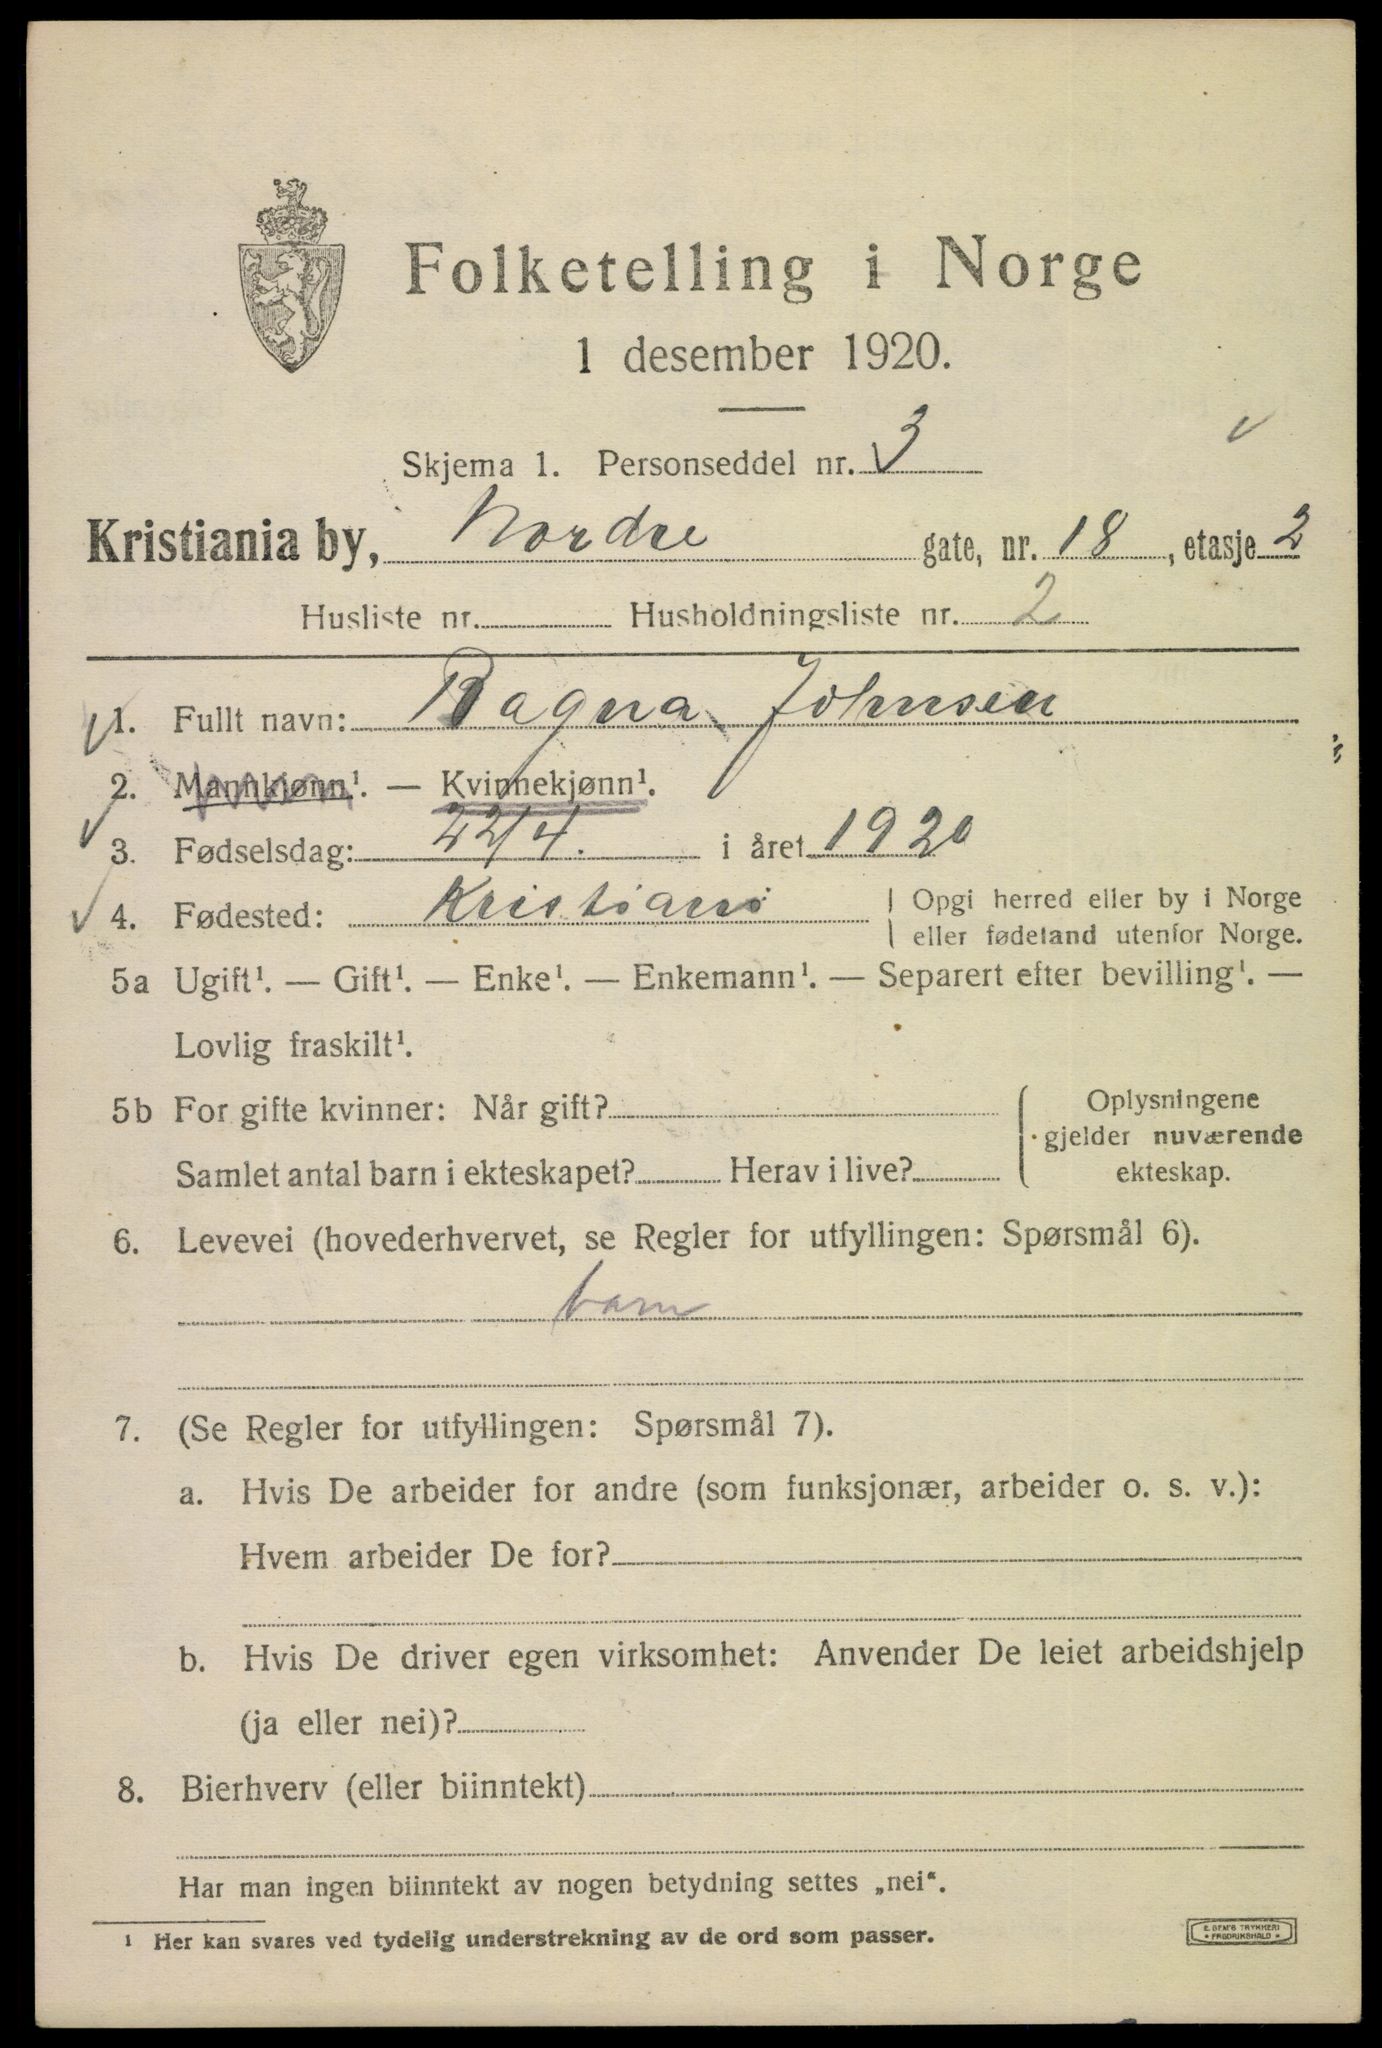 Folketelling i Norge
1 desember 1920.
Skjema 1. Personseddel nr. 3
Kristiania by, Nordre gate, nr. 18, etasje 2
Husliste nr. Husholdningsliste nr. 2
1. Fullt navn: Ragna Johnsen
2. Mannkjønn¹. — Kvinnekjønn¹.
3. Fødselsdag: 22/4. i året 1920
4. Fødested: Kristiania { Opgi herred eller by i Norge
eller fødeland utenfor Norge.
5a Ugift¹. — Gift¹. — Enke¹. — Enkemann¹. — Separert efter bevilling¹. —
Lovlig fraskilt¹.
5b For gifte kvinner: Når gift? { Oplysningene
gjelder nuværende
Samlet antal barn i ekteskapet? Herav i live? ekteskap.
6. Levevei (hovederhvervet, se Regler for utfyllingen: Spørsmål 6).
barn
7. (Se Regler for utfyllingen: Spørsmål 7).
a. Hvis De arbeider for andre (som funksjonær, arbeider o. s. v.):
Hvem arbeider De for?
b. Hvis De driver egen virksomhet: Anvender De leiet arbeidshjelp
(ja eller nei)?
8. Bierhverv (eller biinntekt)
Har man ingen biinntekt av nogen betydning settes „nei“.
¹ Her kan svares ved tydelig understrekning av de ord som passer.
E. SEM'S TRYKKERI
* FREDRIKSHALD *